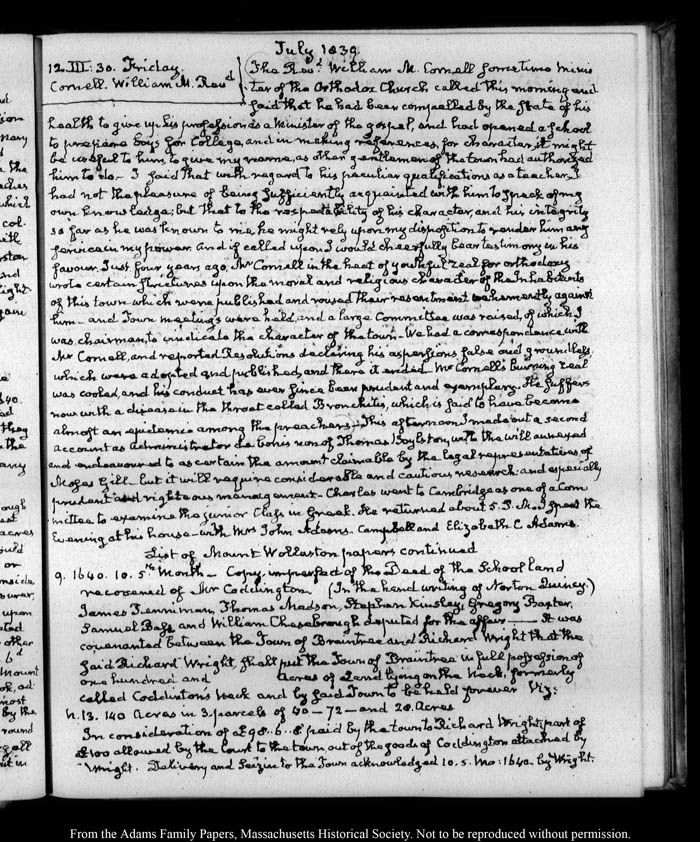 July 1839.
12. III: 30. Friday.
Cornell. William M. Revd
The Revd. William M. Cornell sometime Minis
ter of the Orthodox Church called this morning and
said that he had been compelled by the state of his
health to give up his profession as a Minister of the gospel, and had opened a school
to prepare boys for College, and in making references, for character, it might
be useful to him, to give my name, as other gentlemen of the town had authorized
him to do— I said that with regard to his peculiar qualifications as a teacher, I
had not the pleasure of being sufficiently acquainted with him to speak of my
own knowledge; but that to the respectability of his character, and his integrity
so far as he was known to me, he might rely upon my disposition to render him any
service in my power. And if called upon I would cheerfully bear testimony in his
favour. Just four years ago, Mr Cornell in the heat of youthful zeal for orthodoxy
wrote certain strictures upon the moral and religious character of the Inhabitants
of this town which were published and roused their resentment vehemently against
him— and Town meetings were held, and a large Committee was raised, of which I
was chairman, to vindicate the character of the town— We had a correspondence with
Mr Cornell, and reported Resolutions declaring his aspersions false and groundless,
which were adopted and published, and there it ended. Mr Cornell's burning zeal
was cooled, and his conduct has ever since been prudent and exemplary. He suffers
now with a disease in the throat called Bronchitis, which is said to have become
almost an epidemic among the preachers— This afternoon I made out a second
account as administrator de bonis non of Thomas Boylston, with the will annexed
and endeavoured to ascertain the amount claimable by the legal representatives of
Moses Gill. but it will require considerable and cautious research: and especially
prudent and righteous management— Charles went to Cambridge as one of a Com
mittee to examine the junior Class in Greek. He returned about 5. P.M. I spent the
Evening at his house— with Mrs John Adams. Campbell and Elizabeth C. Adams.
List of Mount Wollaston papers continued
9. 1640. 10. 5th Month— Copy, imperfect of the Deed of the School land
recovered of Mr Coddington (In the hand writing of Norton Quincy.)
James Penniman, Thomas Madson, Stephen Kinsley, Gregory Baxter,
Samuel Bass and William Chesebrough deputed for the affair —— It was
covenanted between the Town of Braintree and Richard Wright that the
said Richard Wright, shall put the Town of Braintree in full possession of
one hundred and acres of Land lying on the Neck, formerly
called Coddinton's Neck and by said Town to be held forever Viz:
N. 13. 140 Acres in 3 parcels of 40— 72— and 28. Acres
In consideration of £98..6..8 paid by the town to Richard Wright, part of
£100 allowed by the Court to the town, out of the goods of Coddington attached by
Wright. Delivery and Seizin to the Town acknowledged 10. 5. Mo: 1640. by Wright.
From the Adams Family Papers, Massachusetts Historical Society. Not to be reproduced without permission.